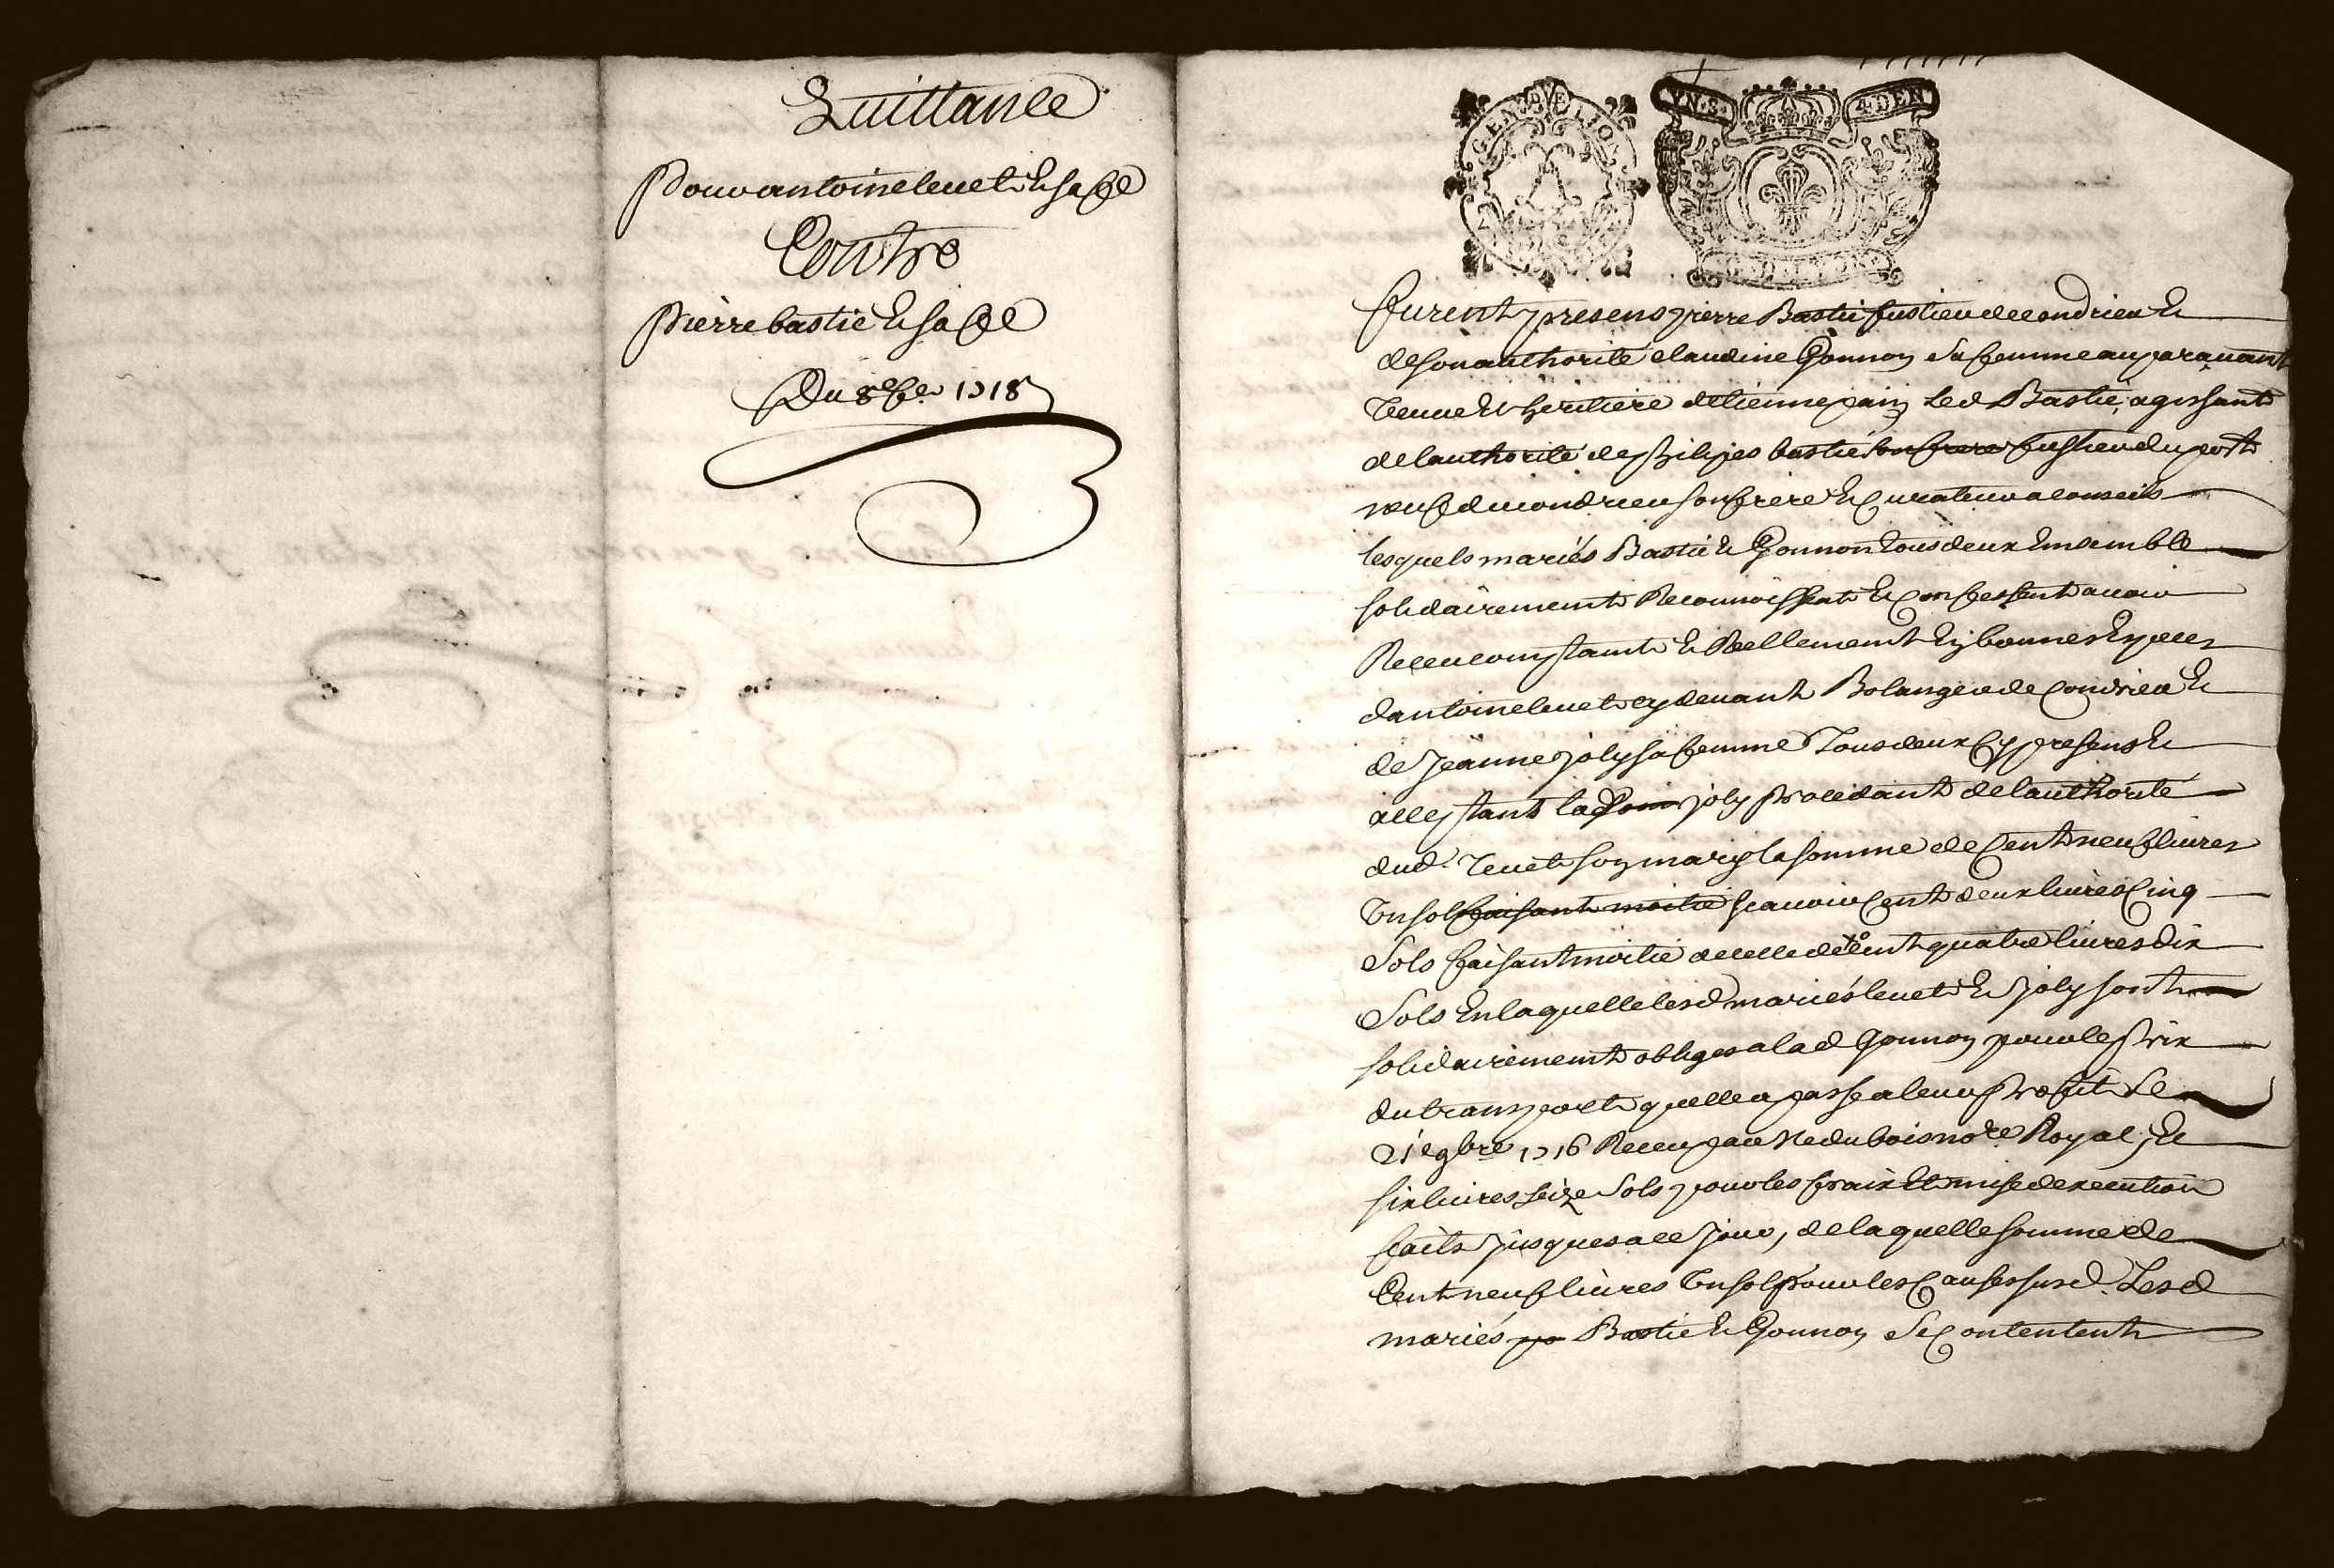 Quittance
Pour antoine leuet & sa fe
Contre
pierre bastie & sa fe
Du 8e 1718
GEN DVE LION
VN.S. 4.DEN
G.DE.LYON
furent presens pierre Bastie fustier de condrieu &
de son authorité claudine Gonnon sa femme auparauant
veuue & heritiere detienne pain led Bastie agissant
de lauthorité de philipes bastie son frere fustier du port
neuf du condrieu son frere & curateur a conseils
lesquels mariés Bastie & Gonnon tous deux Ensemble
solidairement Reconnoissent & confessent auoir
Receu comptant & Reellement En bonnes Especes
dantoine leuet cy deuant Bolanger de Condrieu &
de jeanne joly sa femme tous deux Cy presens &
acceptans lad joly procedant de lauthorité
dud. leuet son mary la somme de Cent neuf liures
Un sol faisant moitié scauoir Cent deux liures Cinq
Sols faisant moitié de celle de cent quatre liures dix
Sols En laquelle lesd mariés leuet & joly sont
solidairement obliges a lad Gonnon pour le prix
du transport quelle a passe a leur profit le
21e 9bre 1716 Receu par Me dubois nore Royal, &
six liures seize Sols pour les fraix Et mise dexecution
faits jusques a ce jour, de laquelle somme de
Cent neuf liures Un sol pour les Causes susd. Lesd
mariés Bastie & Gonnon se Contentent